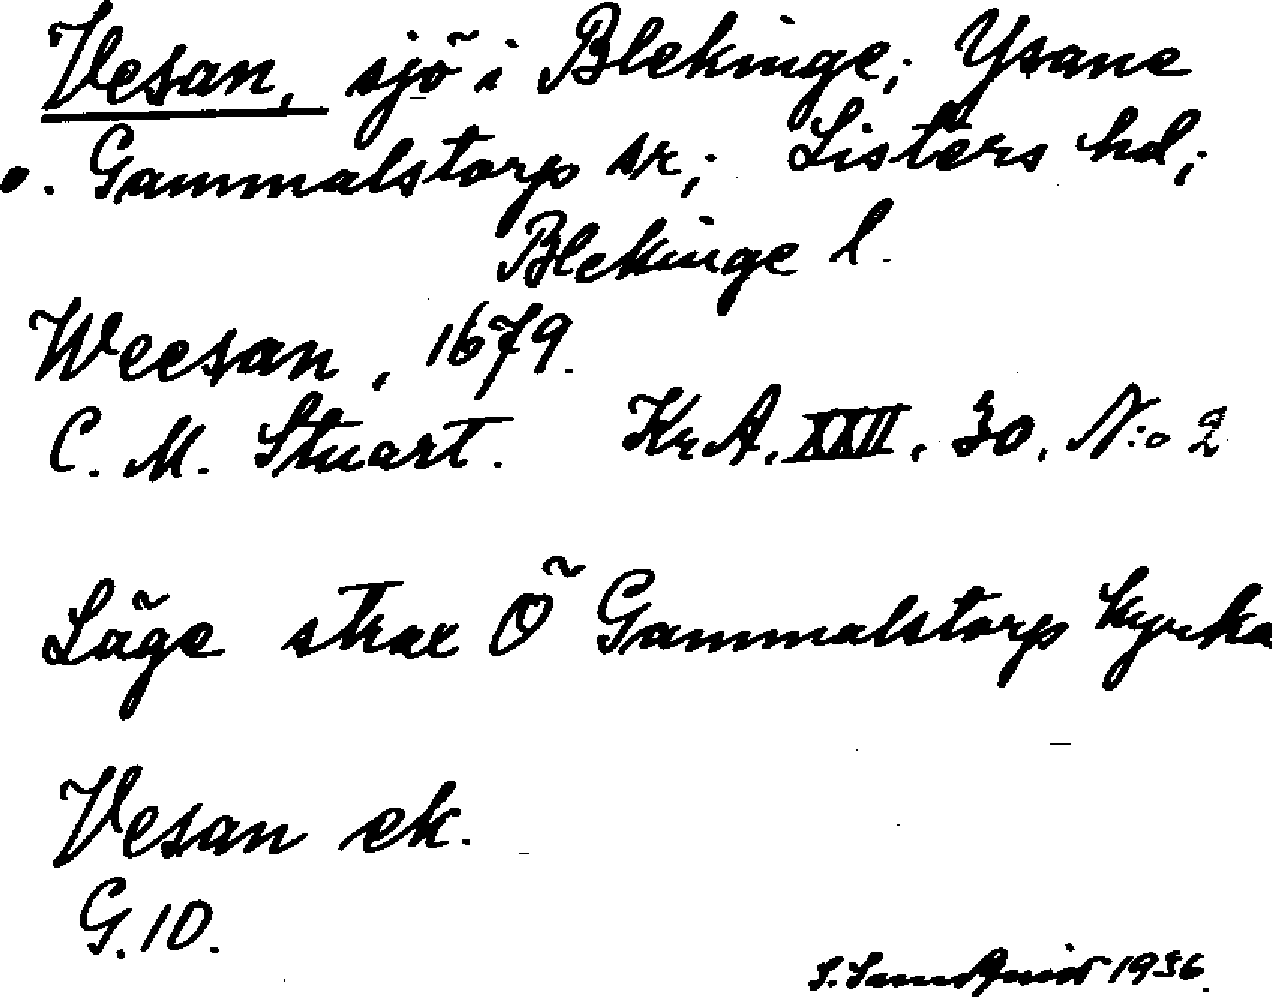 Vesan, sjö i Blekinge; Ysane
o. Gammalstorp sr; Listers hd;
Blekinge l.
Weesan, 1679.
C. M. Stuart. Kr.A. XXII. 30. N:o 2
Läge strax Ö Gammalstorp kyrka
Vesan ek.
G. 10.
1936.